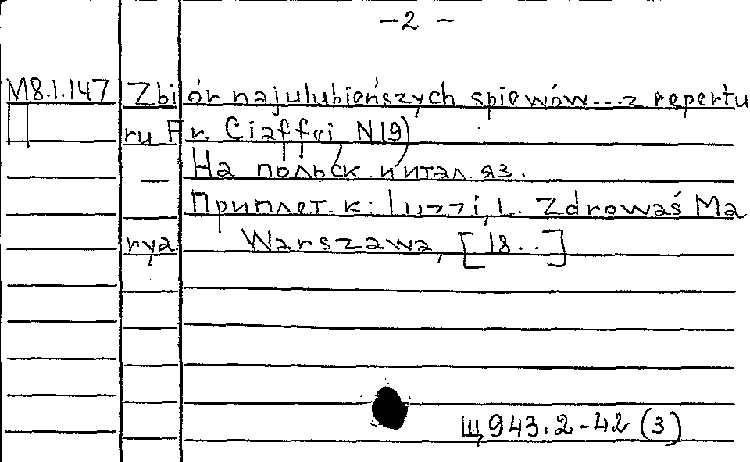 -2-
M8.1.147 Zbiór najulubieńszych spiewów...z repertu
ru Fr. Ciaffei N19)
На польск. и итал. яз.
Приплет. к: Luzzi, L. Zdrowaś Ma
rya Warszawa, [18..]
Щ943.2-42 (3)